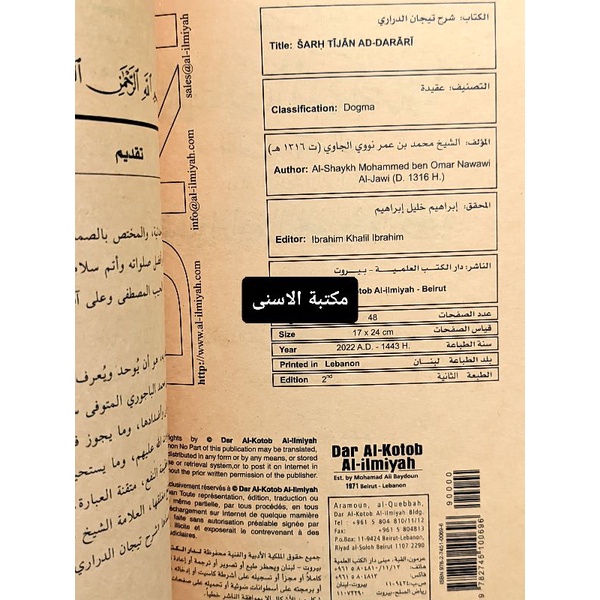 الكتاب: شرح تيجان الدراري
Title: ŠARḤ TĪJĀN AD-DARĀRĪ
التصنيف: عقيدة
Classification: Dogma
المؤلف: الشيخ محمد بن عمر نووي الجاوي (ت ١٣١٦ هـ)
Author: Al-Shaykh Mohammed ben Omar Nawawi
Al-Jawi (D. 1316 H.)
المحقق: إبراهيم خليل إبراهيم
Editor: Ibrahim Khalil Ibrahim
الناشر: دار الكتب العلمية - بيروت
Kotob Al-Ilmiyah - Beirut
مكتبة الاسنى
48 عدد الصفحات
Size 17 x 24 cm قياس الصفحات
Year 2022 A.D. - 1443 H. سنة الطباعة
Printed in Lebanon بلد الطباعة لبنان
Edition 2nd الطبعة الثانية
sales@al-ilmiyah.com
info@al-ilmiyah.com
http://www.al-ilmiyah.com
rights by © Dar Al-Kotob Al-Ilmiyah
No Part of this publication may be translated,
distributed in any form or by any means, or stored
or retrieval system, or to post it on Internet in
without the prior written permission of the publisher.
exclusivement réservés à © Dar Al-Kotob Al-Ilmiyah
Toute représentation, édition, traduction ou
même partielle, par tous procédés, en tous
téléchargement sur Internet de quelque manière
faite sans autorisation préalable signée par
illicite et exposerait le contrevenant à des
جميع حقوق الملكية الأدبية والفنية محفوظة لدار الكتب
بيروت - لبنان ويحظر طبع أو تصوير أو ترجمة أو إعادة
كاملاً أو مجزأ أو تسجيله على أشرطة كاسيت أو إدخاله
أو برمجته على أسطوانات ضوئية إلا بموافقة الناشر خطياً.
Dar Al-Kotob
Al-ilmiyah
Est. by Mohamad Ali Baydoun
1971 Beirut - Lebanon
Aramoun, al-Quebbah,
Dar Al-Kotob Al-Ilmiyah Bldg.
Tel : +961 5 804 810/11/12
Fax: +961 5 804813
P.o.Box: 11-9424 Beirut-Lebanon,
Riyad al-Soloh Beirut 1107 2290
عرمون، القبة، مبنى دار الكتب العلمية
90000
ISBN 978-2-7451-0069-6
9 782745 100696
تقديم